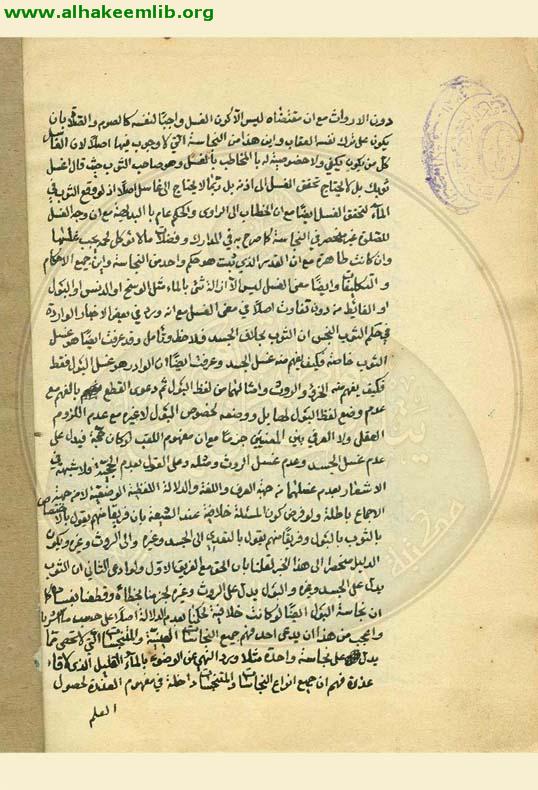 www.alhakeemlib.org
دون الارواث مع ان مقتضاه ليس الا كون الغسل واجبا لنفسه كالصوم والصلوة بان
يكون على ترك نفسه العقاب واين هذا من النجاسة التي لا وجوب فيها اصلا لان الغاسل
كل من يكون يكفي ولا خصوصية له بالمخاطب بالغسل وهو صاحب الثوب حيث قال اغسل
ثوبك بل لا يحتاج تحقق الغسل الى اذنه بل ربما لا يحتاج الى غاسل اصلا اذ لو وقع الثوب في
الماء لتحقق الغسل ايضا مع ان الخطاب الى الراوي والحكم عام بالبديهة مع ان وجه الغسل
للصلوة غير منحصر في النجاسة كما صرح به في المدارك وفضلات ما لا يؤكل لحمه يجب غسلها
وان كانت طاهرة مع ان القدر الذي ثبت هو حكم واحد من النجاسة واين جميع الاحكام
و التكليفات وايضا معنى الغسل ليس الا ازالة شئ بالماء مثل الوسخ او الدبس والبول
او الغائط من دون تفاوت اصلا في معنى الغسل مع انه ورد في بعض الاخبار الواردة
في حكم الثوب النجس ان الثوب خلاف الجسد فلاحظ وتأمل وقد عرفت ايضا هو غسل
الثوب خاصة فكيف يفهم منه غسل الجسد وعرفت ايضا ان الوارد هو غسل البول فقط
فكيف يفهم منه الخرء والروث وامثالهما من لفظ البول ثم دعوى القطع بالفهم مع
عدم وضع لفظ البول لها بل ووضعه لخصوص البول لا غيره مع عدم اللزوم
العقلي ولا العرفي بين المعنيين جزما مع ان مفهوم اللقب لو كان حجة فيدل على
عدم غسل الجسد وعدم غسل الروث ومثله وعلى القول بعدم الحجية فلا شبهة في
الاشعار بعدم غسلهما من جهة العرف واللغة والدلالة اللفظية الوضعية لا من جهة
الاجماع باطلة ولو فرض كون المسئلة خلافية عند الشيعة بان فريقا منهم يقول بالاختصاص
بالثوب بالبول وفريقا منهم يقول بالتعدي الى الجسد وغيره والى الروث وغيره ويكون
الدليل منحصرا في هذا الخبر لقلنا بان الحق مع الفريق الاول ولو ادعى الثاني ان الثوب
يدل على الجسد وغيره والبول يدل على الروث وغيره لجزمنا بخطائه وقطعنا بفساده كما
ان نجاسة البول ايضا لو كانت خلافية لحكمنا بعدم الدلالة اصلا على حسب ما اشرنا
واعجب من هذا ان يدعي احد فهم جميع النجاسات العينية والمتنجسات التي لا تحصى مما
يدل على نجاسة واحدة مثلا ورد النهي عن الوضوء بالماء القليل الذي لاقاه
عذرة فهم ان جميع انواع النجاسات والمتنجسات داخلة في مفهوم العذرة لحصول
العلم